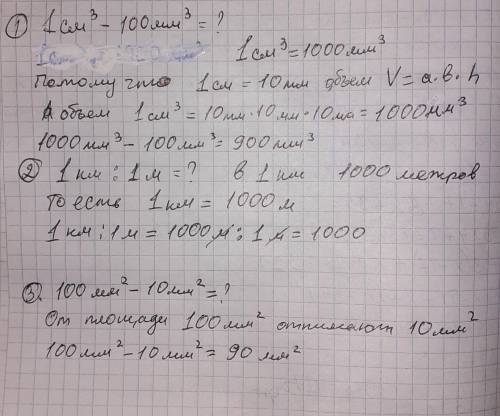 ① 1 см³ – 100 мм³ = ?
1 см³ = 1000 мм³
Потому что 1 см = 10 мм объем V = a·b·h
А объем 1 см³ = 10 мм · 10 мм · 10 мм = 1000 мм³
1000 мм³ – 100 мм³ = 900 мм³
② 1 км : 1 м = ? в 1 км 1000 метров
То есть 1 км = 1000 м
1 км : 1 м = 1000 м : 1 м = 1000
③. 100 мм² – 10 мм² = ?
От площади 100 мм² отнимают 10 мм²
100 мм² – 10 мм² = 90 мм²